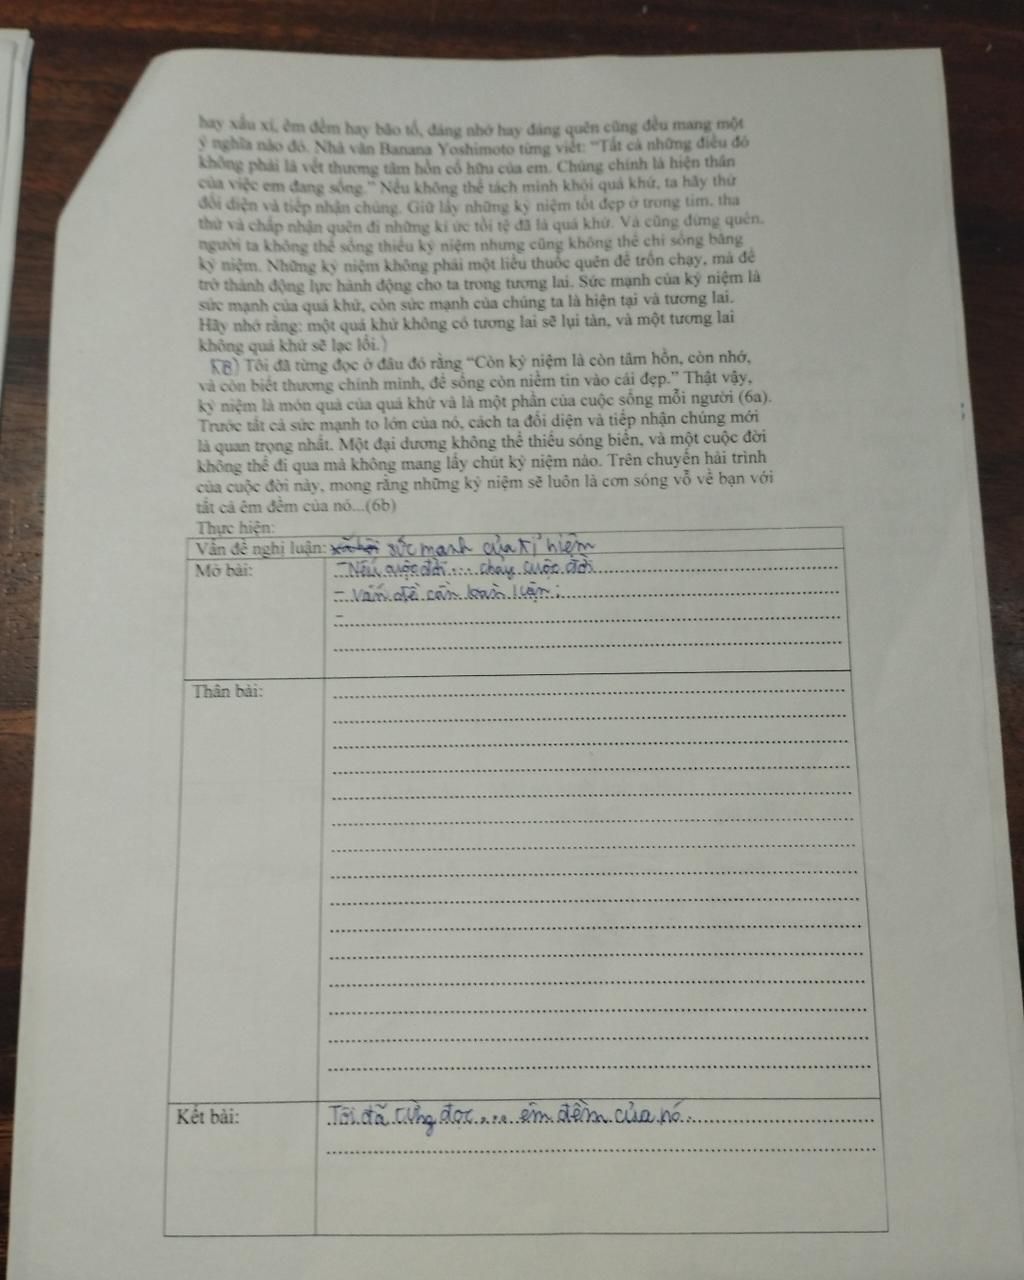 hay xấu xí, êm đềm hay bão tố, đáng nhớ hay đáng quên cũng đều mang một
ý nghĩa nào đó. Nhà văn Banana Yoshimoto từng viết: “Tất cả những điều đó
không phải là vết thương tâm hồn cố hữu của em. Chúng chính là hiện thân
của việc em đang sống.” Nếu không thể tách mình khỏi quá khứ, ta hãy thử
đối diện và tiếp nhận chúng. Giữ lấy những kỷ niệm tốt đẹp ở trong tim, tha
thứ và chấp nhận quên đi những kí ức tồi tệ đã là quá khứ. Và cũng đừng quên,
người ta không thể sống thiếu kỷ niệm nhưng cũng không thể chỉ sống bằng
kỷ niệm. Những kỷ niệm không phải một liều thuốc quên để trốn chạy, mà để
trở thành động lực hành động cho ta trong tương lai. Sức mạnh của kỷ niệm là
sức mạnh của quá khứ, còn sức mạnh của chúng ta là hiện tại và tương lai.
Hãy nhớ rằng: một quá khứ không có tương lai sẽ lụi tàn, và một tương lai
không quá khứ sẽ lạc lối.)
KB) Tôi đã từng đọc ở đâu đó rằng “Còn kỷ niệm là còn tâm hồn, còn nhớ,
và còn biết thương chính mình, để sống còn niềm tin vào cái đẹp.” Thật vậy,
kỷ niệm là món quà của quá khứ và là một phần của cuộc sống mỗi người (6a).
Trước tất cả sức mạnh to lớn của nó, cách ta đối diện và tiếp nhận chúng mới
là quan trọng nhất. Một đại dương không thể thiếu sóng biển, và một cuộc đời
không thể đi qua mà không mang lấy chút kỷ niệm nào. Trên chuyến hải trình
của cuộc đời này, mong rằng những kỷ niệm sẽ luôn là cơn sóng vỗ về bạn với
tất cả êm đềm của nó...(6b)
Thực hiện:
Vấn đề nghị luận: sức mạnh của kỉ niệm
Mở bài: - Nếu cuộc đời .... chảy cuộc đời
- Vấn đề cần bàn luận:
-
Thân bài:
Kết bài: Tôi đã từng đọc .... êm đềm của nó.